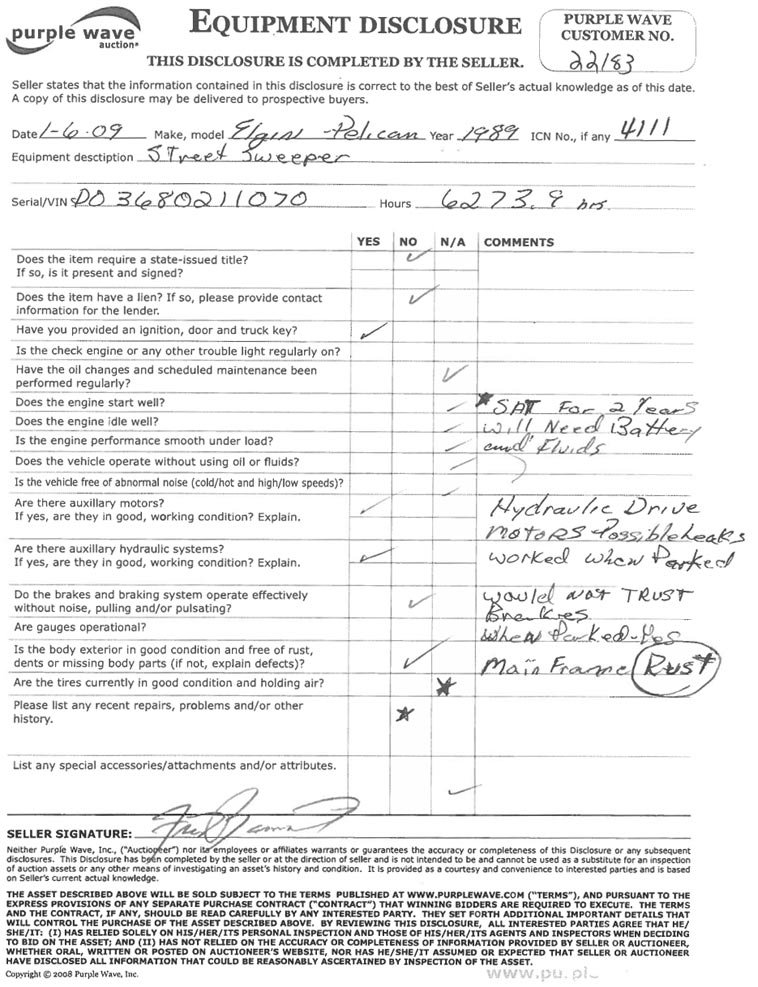 purple wave
auction®
EQUIPMENT DISCLOSURE
THIS DISCLOSURE IS COMPLETED BY THE SELLER.
PURPLE WAVE
CUSTOMER NO.
22183
Seller states that the information contained in this disclosure is correct to the best of Seller's actual knowledge as of this date.
A copy of this disclosure may be delivered to prospective buyers.
Date 1-6-09 Make, model Elgin Pelican Year 1989 ICN No., if any 4111
Equipment desctiption Street Sweeper
Serial/VIN Hours 6273.9 hrs.
YES NO N/A COMMENTS
Does the item require a state-issued title?
If so, is it present and signed?
Does the item have a lien? If so, please provide contact
information for the lender.
Have you provided an ignition, door and truck key?
Is the check engine or any other trouble light regularly on?
Have the oil changes and scheduled maintenance been
performed regularly?
Does the engine start well? *SAT For 2 Years
Does the engine idle well? Will Need Battery
Is the engine performance smooth under load? and Fluids
Does the vehicle operate without using oil or fluids?
Is the vehicle free of abnormal noise (cold/hot and high/low speeds)?
Are there auxillary motors? Hydraulic Drive
If yes, are they in good, working condition? Explain.
Motors Possible Leaks
Are there auxillary hydraulic systems? worked when Parked
If yes, are they in good, working condition? Explain.
Do the brakes and braking system operate effectively would not TRUST
without noise, pulling and/or pulsating?
Are gauges operational? when Parked-Yes
Is the body exterior in good condition and free of rust,
dents or missing body parts (if not, explain defects)? Main Frame Rust
Are the tires currently in good condition and holding air? *
Please list any recent repairs, problems and/or other
history. *
List any special accessories/attachments and/or attributes.
SELLER SIGNATURE:
Neither Purple Wave, Inc., ("Auctioneer") nor its employees or affiliates warrants or guarantees the accuracy or completeness of this Disclosure or any subsequent
disclosures. This Disclosure has been completed by the seller or at the direction of seller and is not intended to be and cannot be used as a substitute for an inspection
of auction assets or any other means of investigating an asset's history and condition. It is provided as a courtesy and convenience to interested parties and is based
on Seller's current actual knowledge.
THE ASSET DESCRIBED ABOVE WILL BE SOLD SUBJECT TO THE TERMS PUBLISHED AT WWW.PURPLEWAVE.COM ("TERMS"), AND PURSUANT TO THE
EXPRESS PROVISIONS OF ANY SEPARATE PURCHASE CONTRACT ("CONTRACT") THAT WINNING BIDDERS ARE REQUIRED TO EXECUTE. THE TERMS
AND THE CONTRACT, IF ANY, SHOULD BE READ CAREFULLY BY ANY INTERESTED PARTY. THEY SET FORTH ADDITIONAL IMPORTANT DETAILS THAT
WILL CONTROL THE PURCHASE OF THE ASSET DESCRIBED ABOVE. BY REVIEWING THIS DISCLOSURE, ALL INTERESTED PARTIES AGREE THAT HE/
SHE/IT: (I) HAS RELIED SOLELY ON HIS/HER/ITS PERSONAL INSPECTION AND THOSE OF HIS/HER/ITS AGENTS AND INSPECTORS WHEN DECIDING
TO BID ON THE ASSET; AND (II) HAS NOT RELIED ON THE ACCURACY OR COMPLETENESS OF INFORMATION PROVIDED BY SELLER OR AUCTIONEER,
WHETHER ORAL, WRITTEN OR POSTED ON AUCTIONEER'S WEBSITE, NOR HAS HE/SHE/IT ASSUMED OR EXPECTED THAT SELLER OR AUCTIONEER
HAVE DISCLOSED ALL INFORMATION THAT COULD BE REASONABLY ASCERTAINED BY INSPECTION OF THE ASSET.
Copyright © 2008 Purple Wave, Inc.